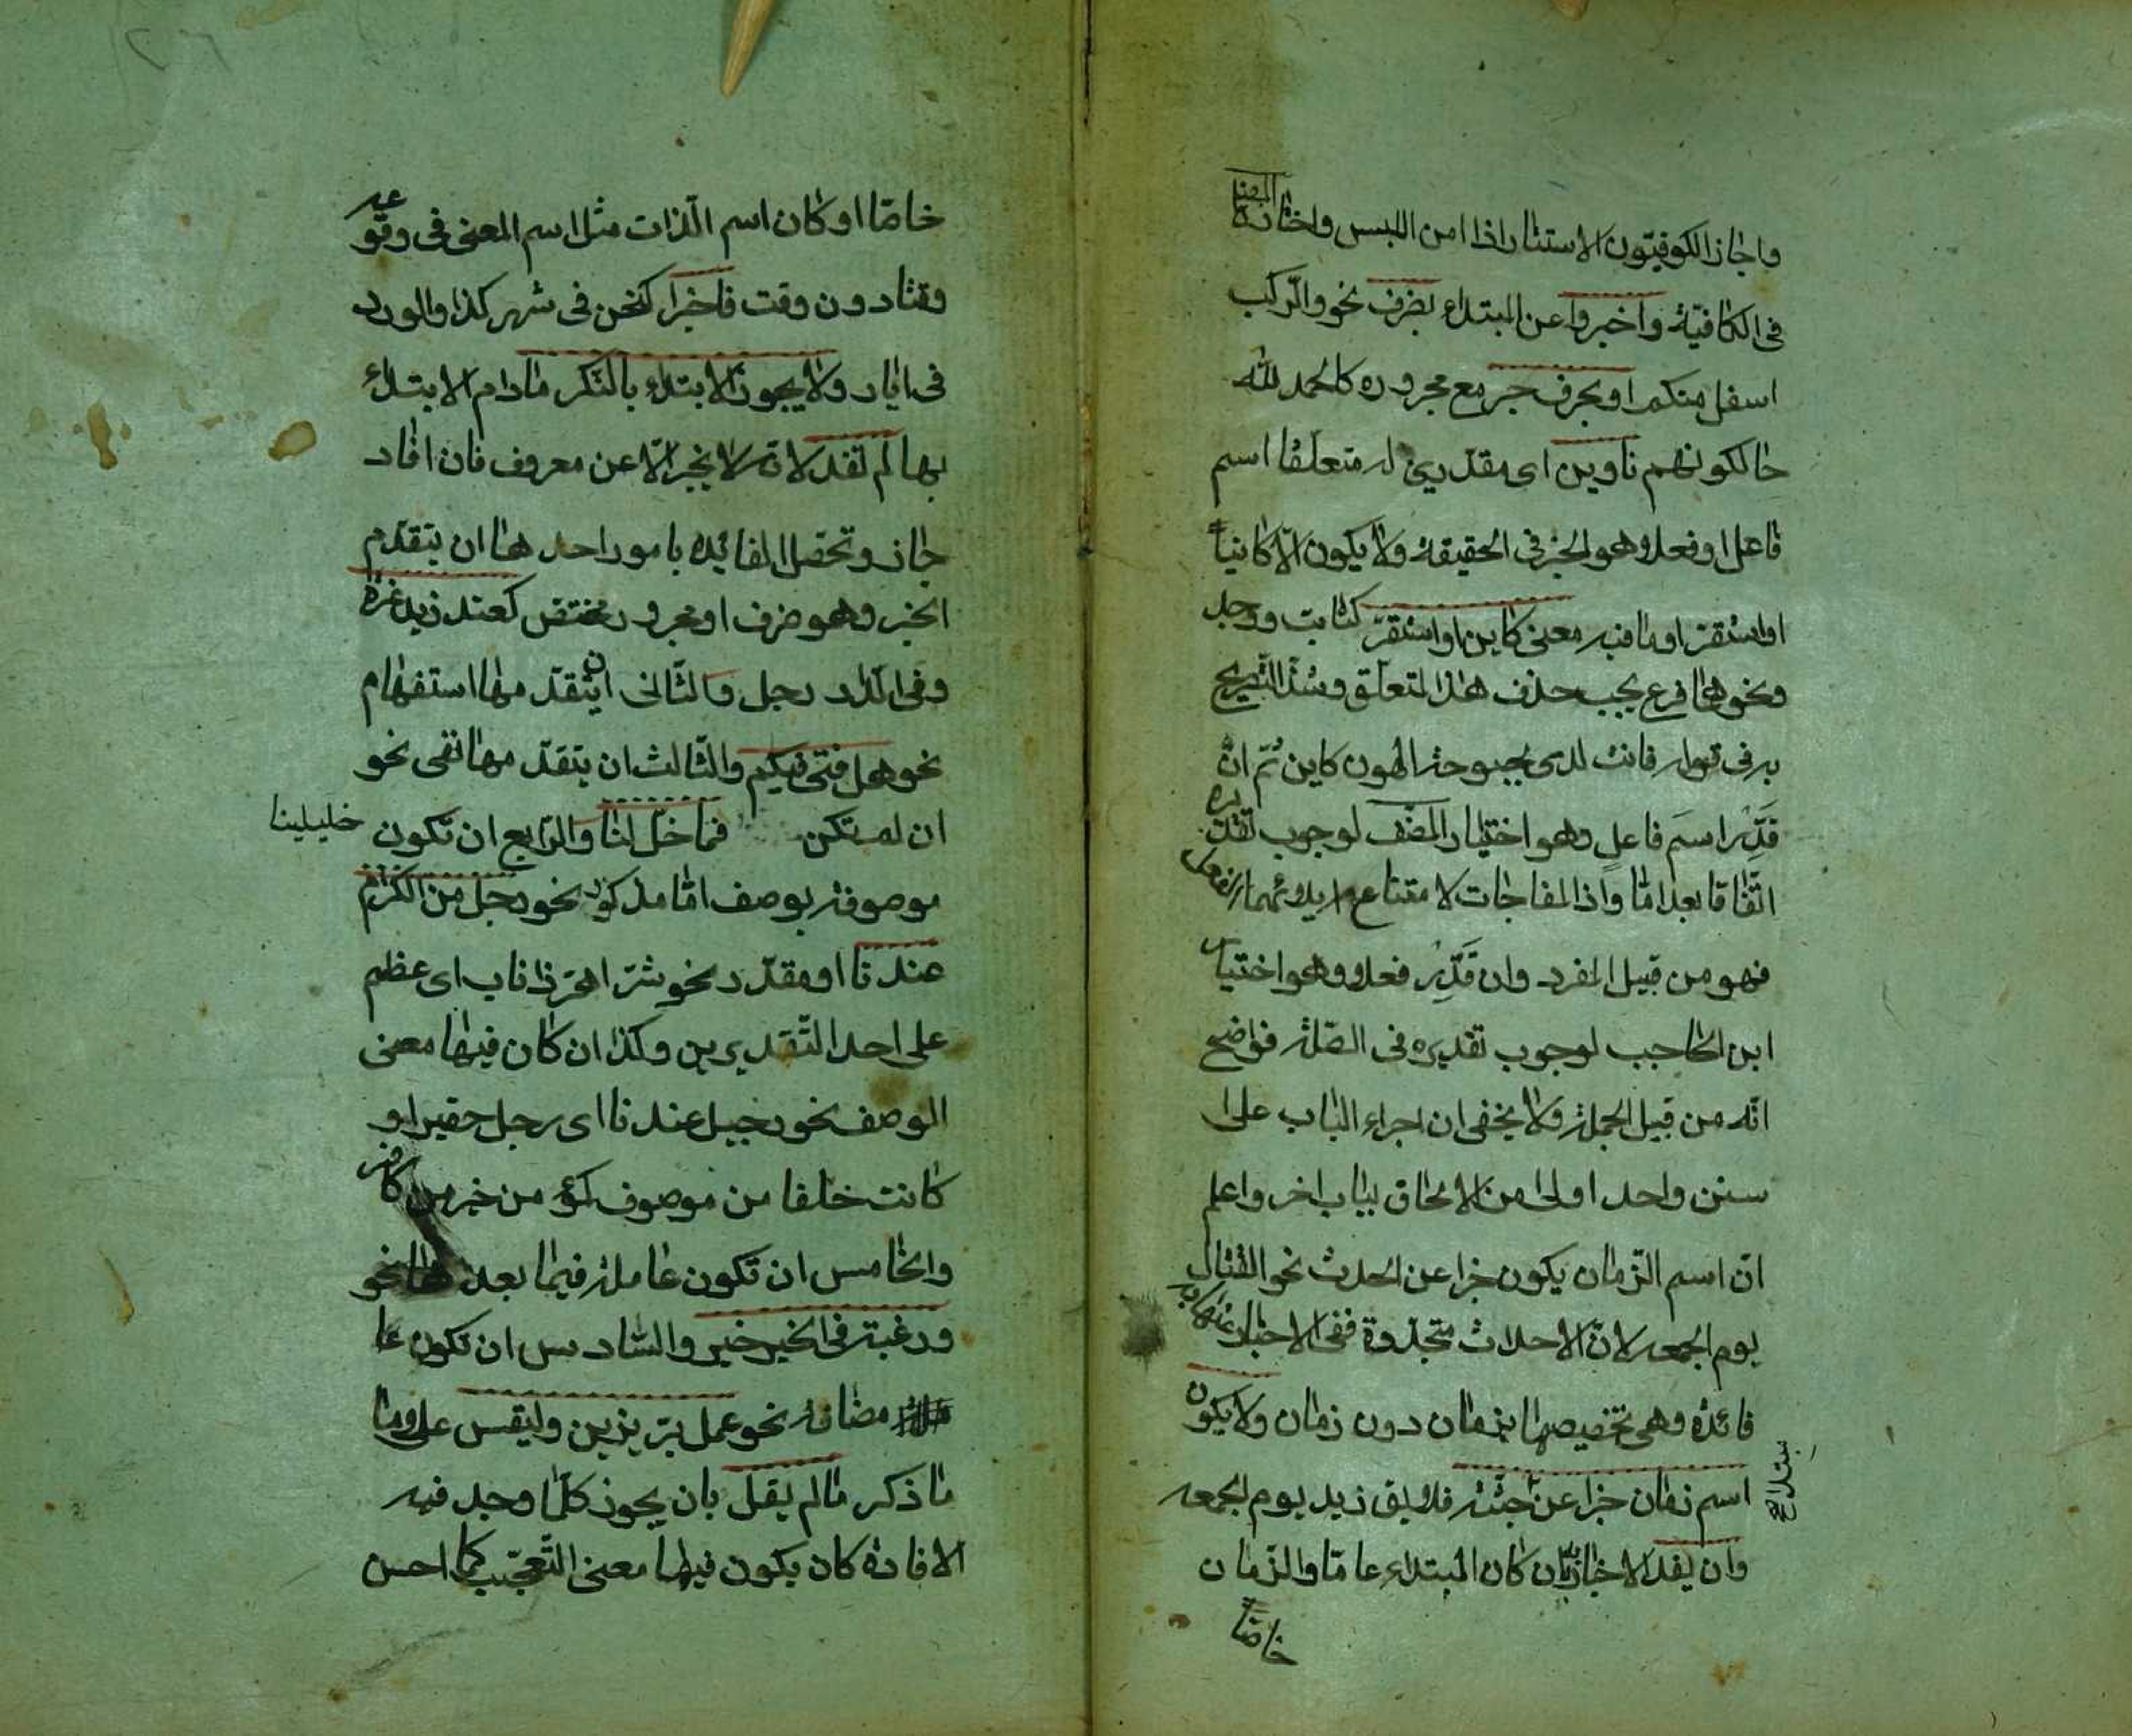 واجاز الكوفيون الاستتار اذا امن اللبس واختاره المصنف
فى الكافية واخبروا عن المبتداء بظرف نحو والركب
اسفل منكم او بحرف جر مع مجروره كالحمد لله
حالكونهم ناوين اى مقدرين له متعلقا اسم
فاعل او فعلا وهو الخبر فى الحقيقة ولا يكون الا كائنا
او استقر او ما فيه معنى كاين او استقر كثابت ووجد
ونحوهما فرع يجب حذف هذا المتعلق وشذ التصريح
به فى قوله فانت لدى بحبوحة الهون كاين ثم ان
قدر اسم فاعل وهو اختيار المصنف لوجوب تقديره
اتفاقا بعد اما واذا المفاجات لامتناع ايلائهما الفعل
فهو من قبيل المفرد وان قدر فعلا وهو اختيار
ابن الحاجب لوجوب تقديره فى الصلة فواضح
انه من قبيل الجملة ولا يخفى ان اجراء الباب على
سنن واحد اولى من الالحاق بباب اخر واعلم
ان اسم الزمان يكون خبرا عن الحدث نحو القتال
يوم الجمعه لان الاحداث متجددة ففى الاخبار عنها به
فائدة وهى تخصيصها بزمان دون زمان ولا يكون
اسم زمان خبرا عن جثة فلا يق زيد يوم الجمعه
وان يفد الاخبار بان كان المبتداء عاما والزمان
خاصا
خاصا او كان اسم الذات مثل اسم المعنى فى وقوعه
وقتا دون وقت فاخبرا كنحن فى شهر كذا والورد
فى ايار ولا يجوز الابتداء بالنكر مادام الابتداء
بها لم تفد لانه لا يخبر الا عن معروف فان افاد
جاز وتحصل الفائده بامور احدها ان يتقدم
الخبر وهو ظرف او مجرور مختص كعند زيد نمرة
وفى الدار رجل والثانى ان يتقدمها استفهام
نحو هل فتى فيكم والثالث ان يتقدمها نفى نحو
ان لم تكن خليلينا فما خل لنا والرابع ان تكون
موصوفة بوصف اما مذكور نحو رجل من الكرام
عندنا او مقدر نحو شر اهر ذا ناب اى عظيم
على احد التقديرين وكذا ان كان فيها معنى
الوصف نحو رجيل عندنا اى رجل حقير او
كانت خلفا من موصوف كمؤمن خير من كافر
والخامس ان تكون عاملة فيما بعدها نحو
ورغبة فى الخير خير والسادس ان تكون عا
مضافة نحو عمل بر يزين وليقس على
ما ذكر مالم يقل بان يجوز كلما وجد فيه
الافادة كان يكون فيها معنى التعجب كما احسن